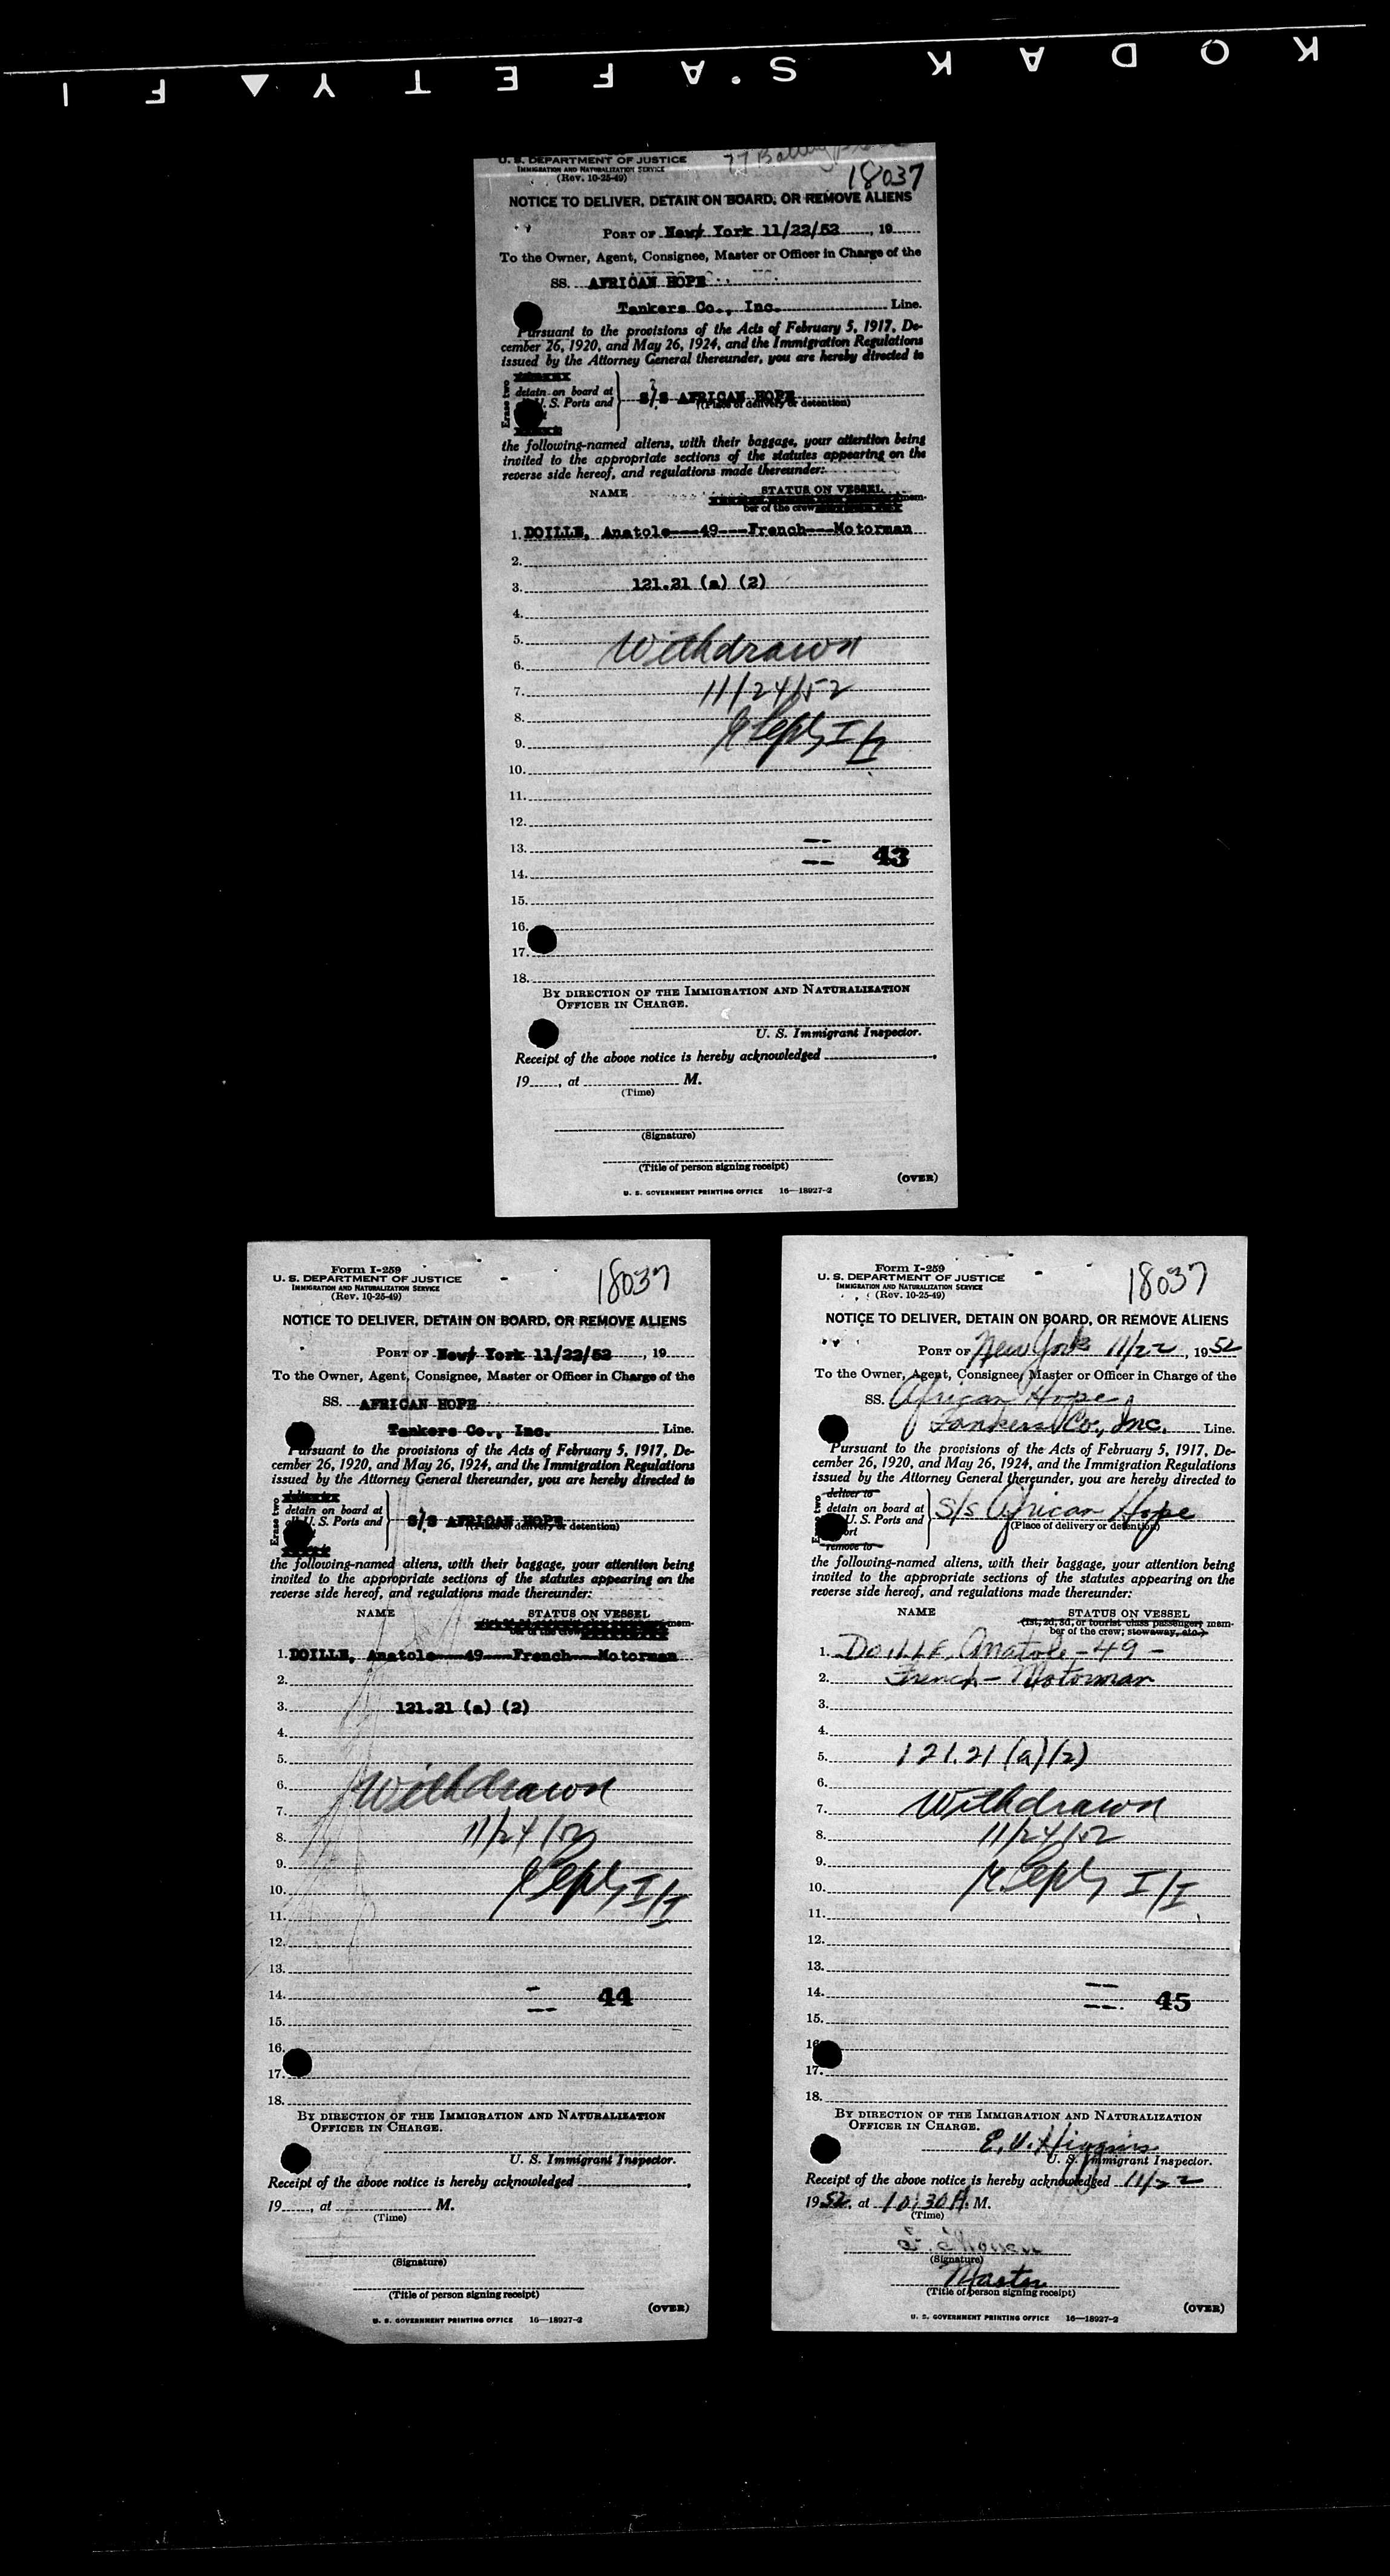 KODAK SAFETY FI
U. S. DEPARTMENT OF JUSTICE
IMMIGRATION AND NATURALIZATION SERVICE
(Rev. 10-25-49)
77
18037
NOTICE TO DELIVER, DETAIN ON BOARD, OR REMOVE ALIENS
PORT OF New York 11/22/52, 19
To the Owner, Agent, Consignee, Master or Officer in Charge of the
SS. AFRICAN HOPE
Tankers Co., Inc. Line.
Pursuant to the provisions of the Acts of February 5, 1917, De-
cember 26, 1920, and May 26, 1924, and the Immigration Regulations
issued by the Attorney General thereunder, you are hereby directed to
Erase two
detain on board at
U. S. Ports and
S/S AFRICAN HOPE
(Place of delivery or detention)
the following-named aliens, with their baggage, your attention being
invited to the appropriate sections of the statutes appearing on the
reverse side hereof, and regulations made thereunder:
NAME STATUS ON VESSEL
mem-
ber of the crew
1. DOILLE, Anatole---49---French---Motorman
2.
3. 121.21 (a) (2)
4.
5. Withdrawn
6.
7. 11/24/52
8.
9. I/I
10.
11.
12.
13. 43
14.
15.
16.
17.
18.
BY DIRECTION OF THE IMMIGRATION AND NATURALIZATION
OFFICER IN CHARGE.
U. S. Immigrant Inspector.
Receipt of the above notice is hereby acknowledged
19, at M.
(Time)
(Signature)
(Title of person signing receipt)
(OVER)
U. S. GOVERNMENT PRINTING OFFICE 16—18927-2
Form I-259
U. S. DEPARTMENT OF JUSTICE
IMMIGRATION AND NATURALIZATION SERVICE
(Rev. 10-25-49)
18037
NOTICE TO DELIVER, DETAIN ON BOARD, OR REMOVE ALIENS
PORT OF New York 11/22/52, 19
To the Owner, Agent, Consignee, Master or Officer in Charge of the
SS. AFRICAN HOPE
Tankers Co., Inc. Line.
Pursuant to the provisions of the Acts of February 5, 1917, De-
cember 26, 1920, and May 26, 1924, and the Immigration Regulations
issued by the Attorney General thereunder, you are hereby directed to
Erase two
detain on board at
U. S. Ports and
S/S AFRICAN HOPE
(Place of delivery or detention)
the following-named aliens, with their baggage, your attention being
invited to the appropriate sections of the statutes appearing on the
reverse side hereof, and regulations made thereunder:
NAME STATUS ON VESSEL
mem-
ber of the crew
1. DOILLE, Anatole---49---French---Motorman
2.
3. 121.21 (a) (2)
4.
5.
6. Withdrawn
7.
8. 11/24/52
9.
10. I/I
11.
12.
13.
14. 44
15.
16.
17.
18.
BY DIRECTION OF THE IMMIGRATION AND NATURALIZATION
OFFICER IN CHARGE.
U. S. Immigrant Inspector.
Receipt of the above notice is hereby acknowledged
19, at M.
(Time)
(Signature)
(Title of person signing receipt)
(OVER)
U. S. GOVERNMENT PRINTING OFFICE 16—18927-2
Form I-259
U. S. DEPARTMENT OF JUSTICE
IMMIGRATION AND NATURALIZATION SERVICE
(Rev. 10-25-49)
18037
NOTICE TO DELIVER, DETAIN ON BOARD, OR REMOVE ALIENS
PORT OF New York 11/22, 1952
To the Owner, Agent, Consignee, Master or Officer in Charge of the
SS. African Hope
Tankers Co., Inc. Line.
Pursuant to the provisions of the Acts of February 5, 1917, De-
cember 26, 1920, and May 26, 1924, and the Immigration Regulations
issued by the Attorney General thereunder, you are hereby directed to
deliver to
detain on board at
U. S. Ports and
remove to
S/s African Hope
(Place of delivery or detention)
the following-named aliens, with their baggage, your attention being
invited to the appropriate sections of the statutes appearing on the
reverse side hereof, and regulations made thereunder:
NAME STATUS ON VESSEL
(1st, 2d, 3d, or tourist class passenger; mem-
ber of the crew; stowaway, etc.)
1. DOILLE, Anatole - 49 -
2. French - Motorman
3.
4.
5. 121.21 (a) (2)
6.
7. Withdrawn
8. 11/24/52
9.
10. I/I
11.
12.
13.
14. 45
15.
16.
17.
18.
BY DIRECTION OF THE IMMIGRATION AND NATURALIZATION
OFFICER IN CHARGE.
E. V. Higgins
U. S. Immigrant Inspector.
Receipt of the above notice is hereby acknowledged 11/22
1952, at 10:30 A. M.
(Time)
(Signature)
Master
(Title of person signing receipt)
(OVER)
U. S. GOVERNMENT PRINTING OFFICE 16—18927-2